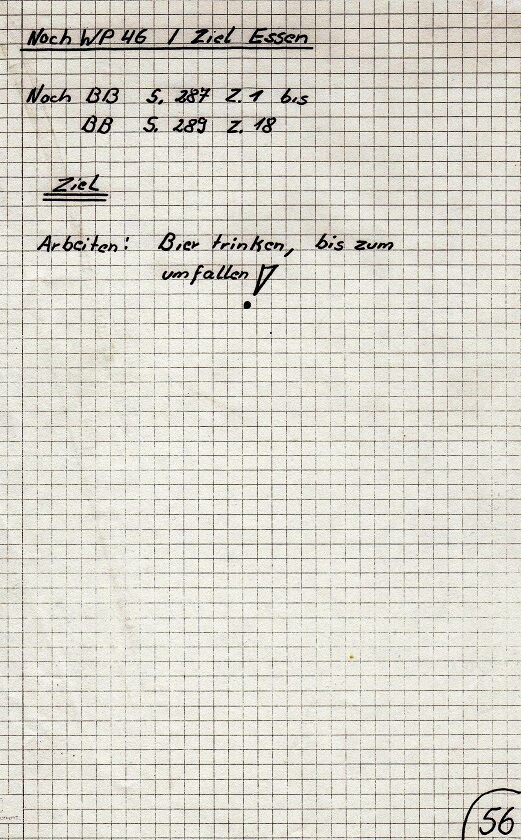 Noch WP 46 / Ziel Essen
Noch BB S. 287 Z. 1 bis
BB S. 289 Z. 18
Ziel
Arbeiten: Bier trinken, bis zum
umfallen!
56